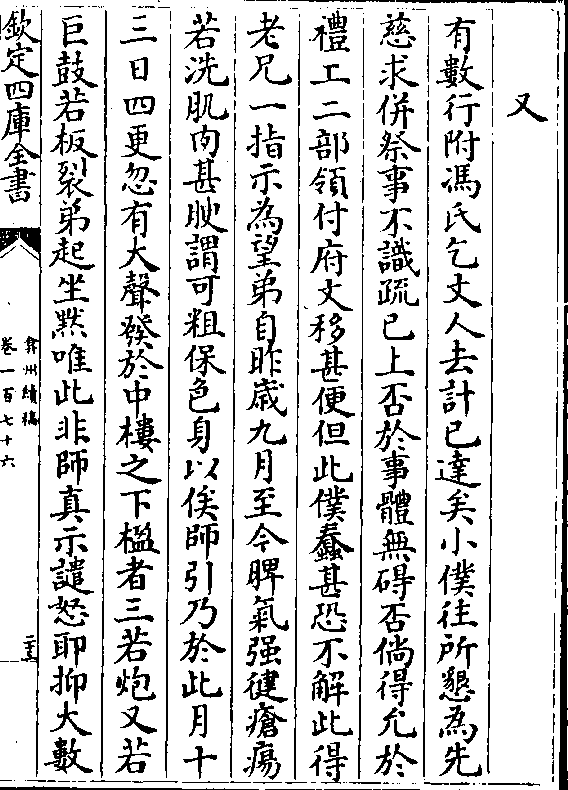 又
有數行附馮氏乞丈人去計已達矣小僕往所懇為先
慈求併祭事不識疏已上否於事體無碍否倘得允於
禮工二部領付府文移甚便但此僕蠢甚恐不解此得
老兄一指示為望弟自昨歲九月至今脾氣强健瘡瘍
若洗肌肉甚腴謂可粗保色身以俟師引乃於此月十
三日四更忽有大聲發於中樓之下楹者三若炮又若
巨鼓若板裂弟起坐默唯此非師真示譴怒耶抑大數
欽定四庫全書
弇州續稿
卷一百七十六